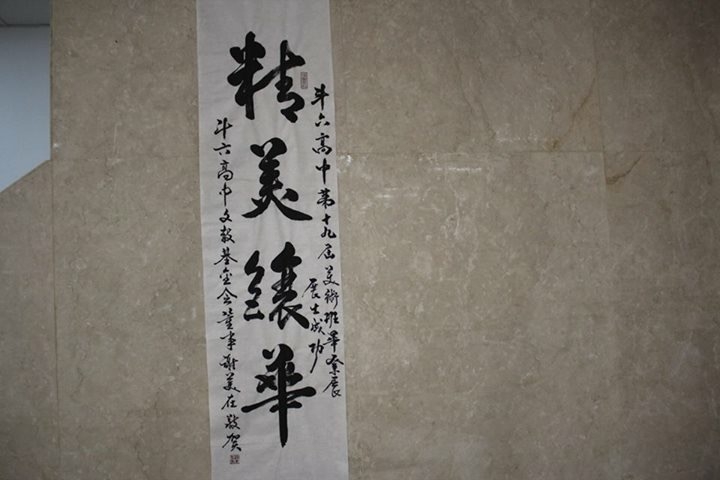 斗六高中第十九屆美術班畢業展
展出成功
精美鑲華
斗六高中文教基金會董事謝美在敬賀